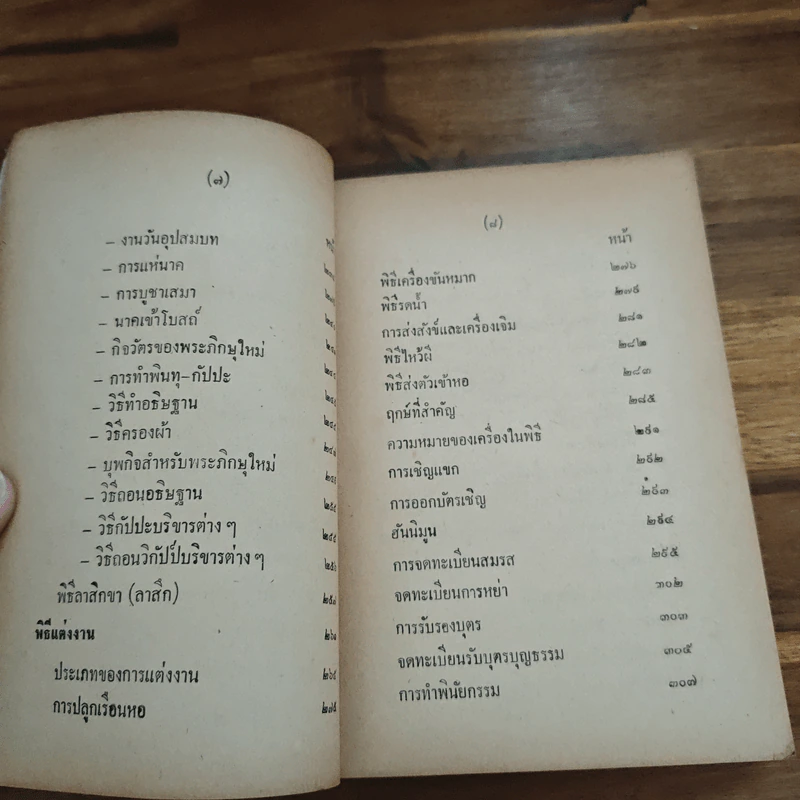 (๗)
- งานวันอุปสมบท
- การแห่นาค
- การบูชาเสมา
- นาคเข้าโบสถ์
- กิจวัตรของพระภิกษุใหม่
- การทำพินทุ-กัปปะ
- วิธีทำอธิษฐาน
- วิธีครองผ้า
- บุพกิจสำหรับพระภิกษุใหม่
- วิธีถอนอธิษฐาน
- วิธีกัปปะบริขารต่าง ๆ
- วิธีถอนวิกัปป์บริขารต่าง ๆ
พิธีลาสิกขา (ลาสึก)
พิธีแต่งงาน
ประเภทของการแต่งงาน
การปลูกเรือนหอ
(๘)
หน้า
พิธีเครื่องขันหมาก ๒๗๖
พิธีรดน้ำ ๒๗๙
การส่งสังข์และเครื่องเจิม ๒๘๑
พิธีไหว้ผี ๒๘๒
พิธีส่งตัวเข้าหอ ๒๘๓
ฤกษ์ที่สำคัญ ๒๘๕
ความหมายของเครื่องในพิธี ๒๙๑
การเชิญแขก ๒๙๒
การออกบัตรเชิญ ๒๙๓
ฮันนิมูน ๒๙๔
การจดทะเบียนสมรส ๒๙๕
จดทะเบียนการหย่า ๓๐๒
การรับรองบุตร ๓๐๓
จดทะเบียนรับบุตรบุญธรรม ๓๐๕
การทำพินัยกรรม ๓๐๗